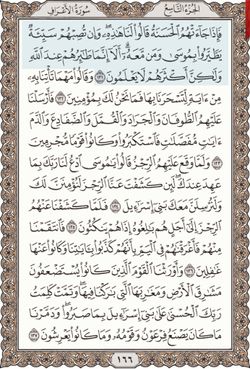 الجزء التاسع سورة الأعراف
فَإِذَا جَآءَتْهُمُ ٱلْحَسَنَةُ قَالُوا۟ لَنَا هَـٰذِهِۦ ۖ وَإِن تُصِبْهُمْ سَيِّئَةٌ
يَطَّيَّرُوا۟ بِمُوسَىٰ وَمَن مَّعَهُۥٓ ۗ أَلَآ إِنَّمَا طَـٰٓئِرُهُمْ عِندَ ٱللَّهِ
وَلَـٰكِنَّ أَكْثَرَهُمْ لَا يَعْلَمُونَ ١٣١ وَقَالُوا۟ مَهْمَا تَأْتِنَا بِهِۦ
مِنْ ءَايَةٍ لِّتَسْحَرَنَا بِهَا فَمَا نَحْنُ لَكَ بِمُؤْمِنِينَ ١٣٢ فَأَرْسَلْنَا
عَلَيْهِمُ ٱلطُّوفَانَ وَٱلْجَرَادَ وَٱلْقُمَّلَ وَٱلضَّفَادِعَ وَٱلدَّمَ
ءَايَـٰتٍ مُّفَصَّلَـٰتٍ فَٱسْتَكْبَرُوا۟ وَكَانُوا۟ قَوْمًا مُّجْرِمِينَ
١٣٣ وَلَمَّا وَقَعَ عَلَيْهِمُ ٱلرِّجْزُ قَالُوا۟ يَـٰمُوسَى ٱدْعُ لَنَا رَبَّكَ بِمَا
عَهِدَ عِندَكَ ۖ لَئِن كَشَفْتَ عَنَّا ٱلرِّجْزَ لَنُؤْمِنَنَّ لَكَ
وَلَنُرْسِلَنَّ مَعَكَ بَنِىٓ إِسْرَٰٓءِيلَ ١٣٤ فَلَمَّا كَشَفْنَا عَنْهُمُ
ٱلرِّجْزَ إِلَىٰٓ أَجَلٍ هُم بَـٰلِغُوهُ إِذَا هُمْ يَنكُثُونَ ١٣٥ فَٱنتَقَمْنَا
مِنْهُمْ فَأَغْرَقْنَـٰهُمْ فِى ٱلْيَمِّ بِأَنَّهُمْ كَذَّبُوا۟ بِـَٔايَـٰتِنَا وَكَانُوا۟ عَنْهَا
غَـٰفِلِينَ ١٣٦ وَأَوْرَثْنَا ٱلْقَوْمَ ٱلَّذِينَ كَانُوا۟ يُسْتَضْعَفُونَ
مَشَـٰرِقَ ٱلْأَرْضِ وَمَغَـٰرِبَهَا ٱلَّتِى بَـٰرَكْنَا فِيهَا ۖ وَتَمَّتْ كَلِمَتُ
رَبِّكَ ٱلْحُسْنَىٰ عَلَىٰ بَنِىٓ إِسْرَٰٓءِيلَ بِمَا صَبَرُوا۟ ۖ وَدَمَّرْنَا
مَا كَانَ يَصْنَعُ فِرْعَوْنُ وَقَوْمُهُۥ وَمَا كَانُوا۟ يَعْرِشُونَ ١٣٧
١٦٦